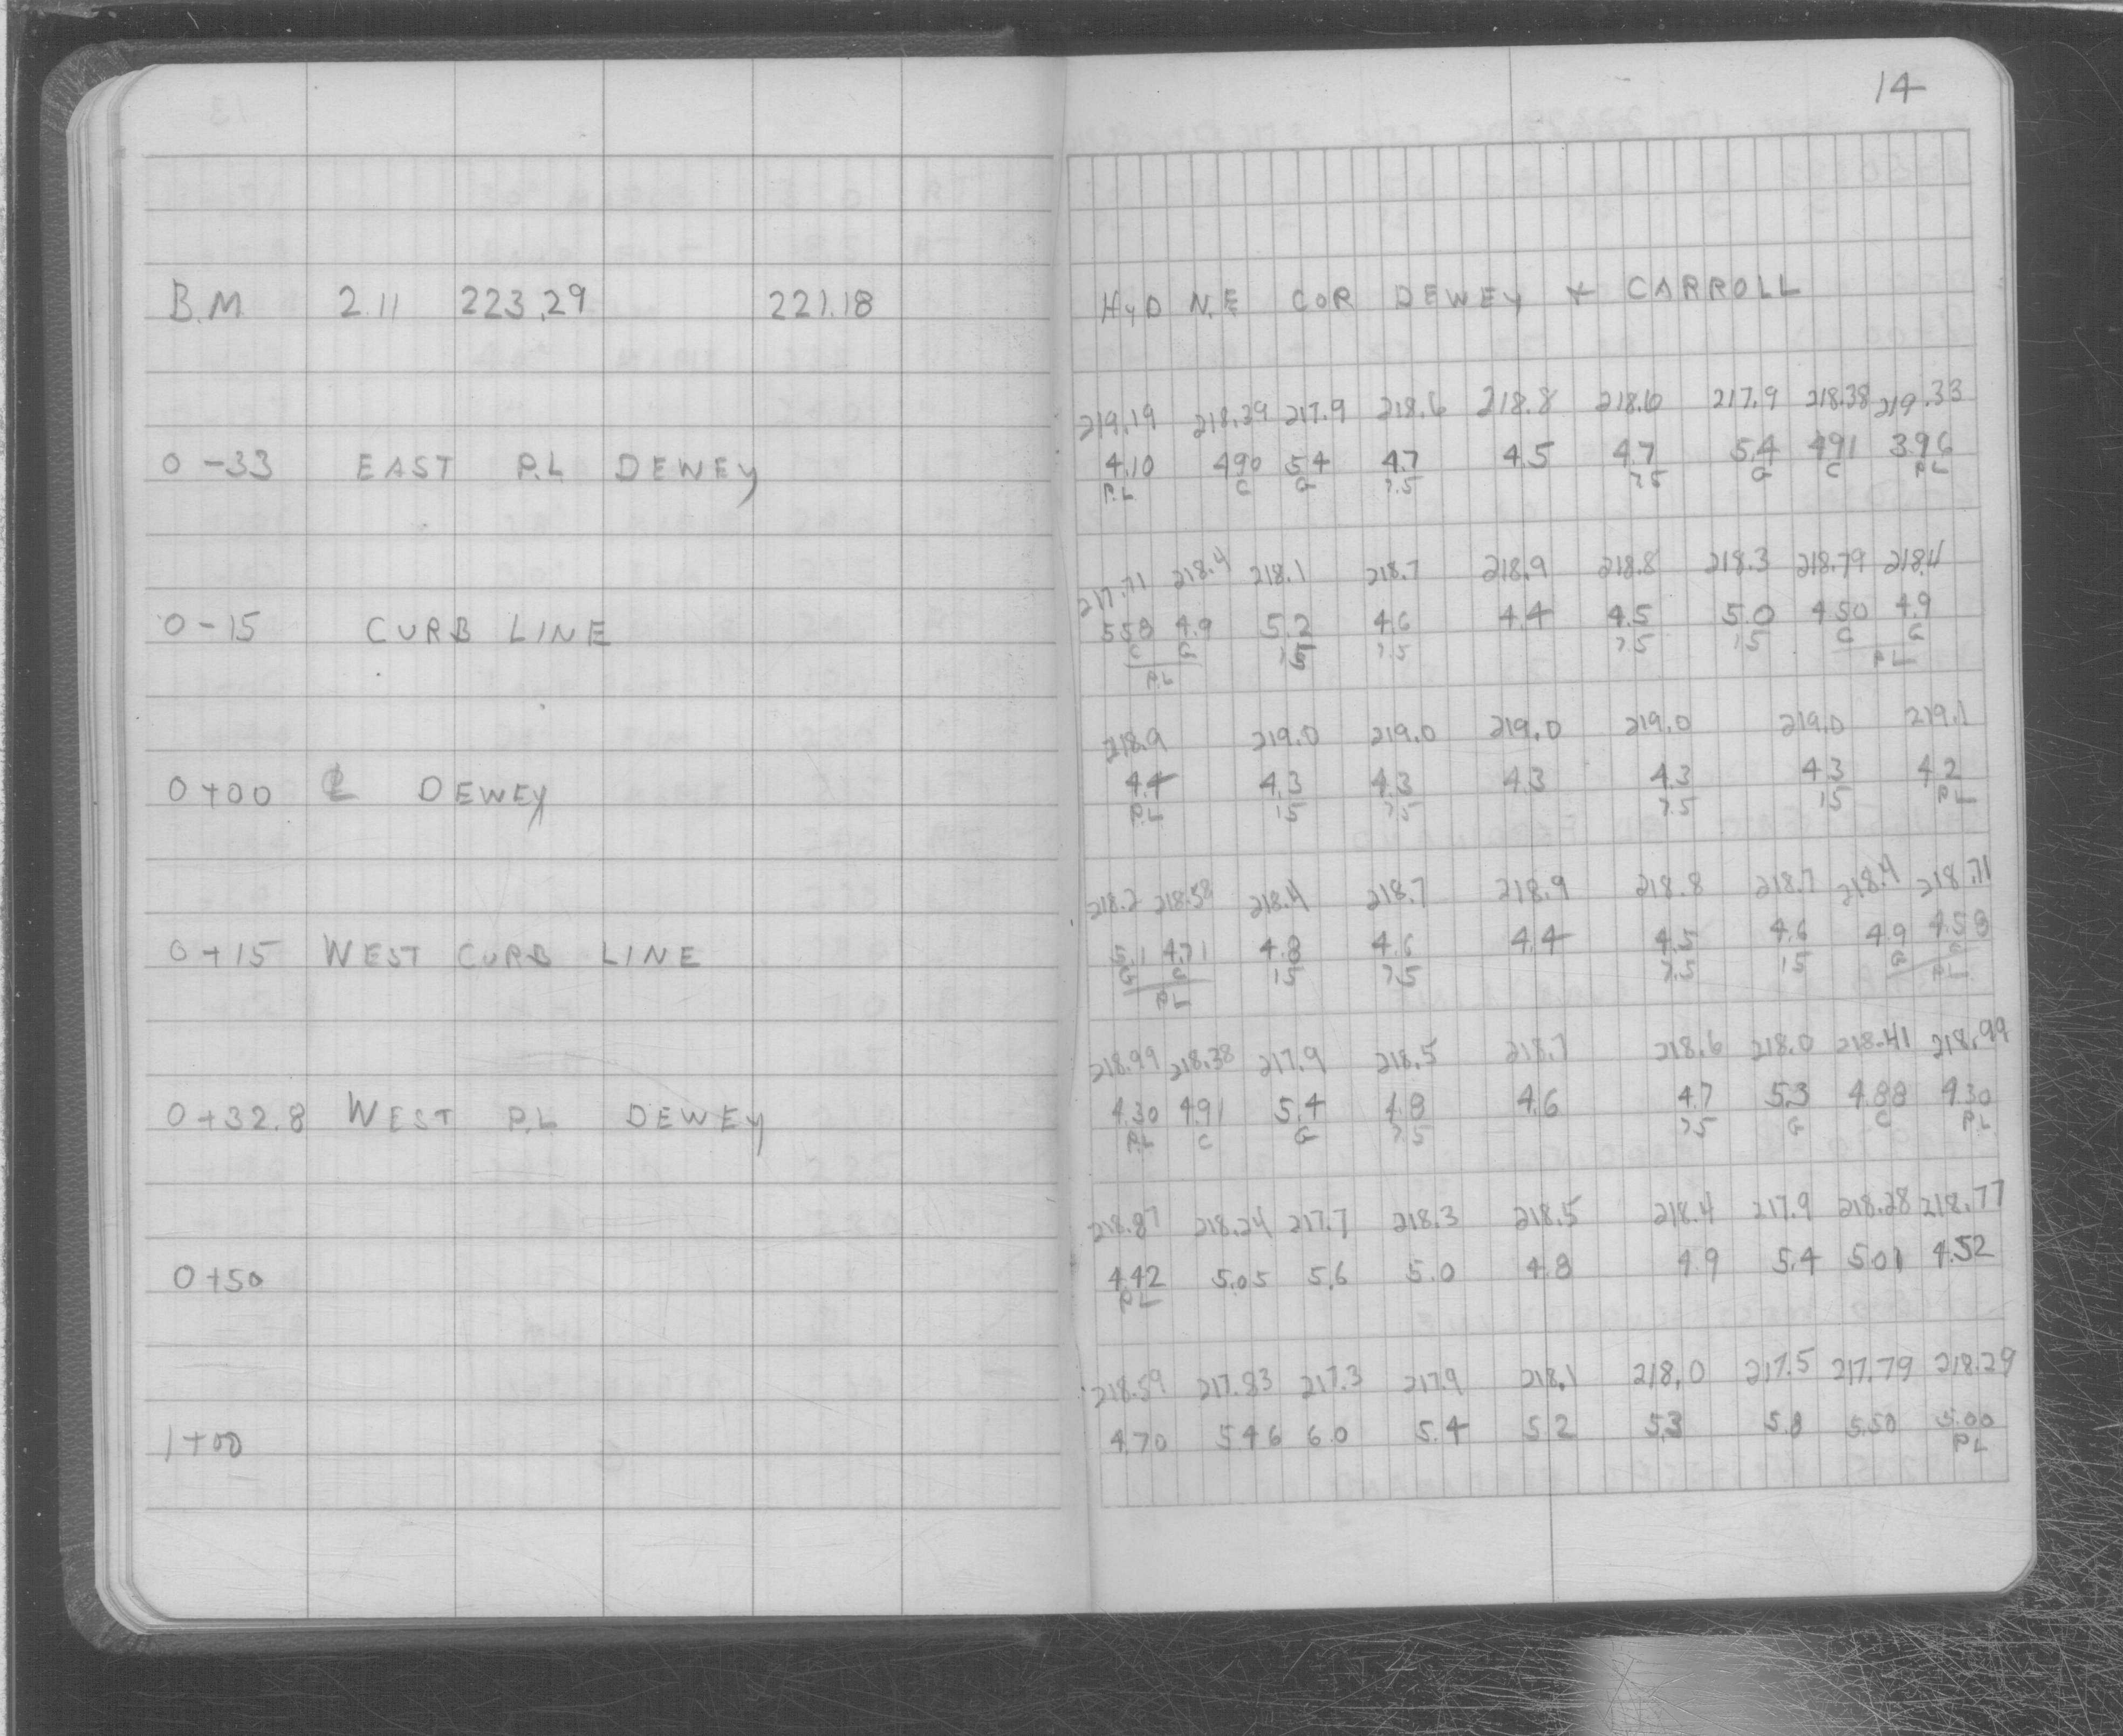 14
B.M 2.11 223.29 221.18 HyD N.E COR DEWEY & CARROLL
219.19 218.39 217.9 218.6 218.8 218.6 217.9 218.38 219.33
0-33 EAST P.L DEWEY 4.10 490 5.4 4.7 4.5 4.7 5.4 491 3.96
P.L C G 7.5 7.5 G C P.L
217.71 218.4 218.1 218.7 218.9 218.8 218.3 218.79 218.4
0-15 CURB LINE 558 4.9 5.2 4.6 4.4 4.5 5.0 450 4.9
C G 15 7.5 7.5 15 C G
P.L P.L
218.9 219.0 219.0 219.0 219.0 219.0 219.1
0+00 ℄ DEWEY 4.4 4.3 4.3 4.3 4.3 4.3 4.2
P.L 15 7.5 7.5 15 P.L
218.2 218.58 218.4 218.7 218.9 218.8 218.7 218.4 218.71
0+15 WEST CURB LINE 5.1 4.71 4.8 4.6 4.4 4.5 4.6 4.9 4.58
G C 15 7.5 7.5 15 G C
P.L P.L
218.99 218.38 217.9 218.5 218.7 218.6 218.0 218.41 218.99
0+32.8 WEST P.L DEWEY 4.30 491 5.4 4.8 4.6 4.7 5.3 4.88 4.30
P.L C G 7.5 7.5 G C P.L
218.87 218.24 217.7 218.3 218.5 218.4 217.9 218.28 218.77
0+50 4.42 5.05 5.6 5.0 4.8 4.9 5.4 501 4.52
P.L
218.59 217.83 217.3 217.9 218.1 218.0 217.5 217.79 218.29
1+00 4.70 546 6.0 5.4 5.2 5.3 5.8 5.50 5.00
P.L